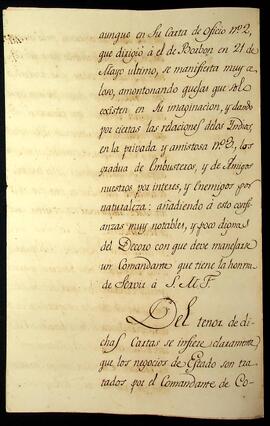 aunque en su Carta de oficio nº 2,
que dirigió á el de Borbon en 21 de
Mayo ultimo, se manifiesta muy ze-
loso, amontonando quejas que solo
existen en su imaginacion, y dando
por ciertas las relaciones delos Indios,
en la privada y amistosa nº 3, los
gradua de Embusteros, y de Amigos
nuestros por interes, y Enemigos por
naturaleza: añadiendo á esto confi-
anzas muy notables, y poco dignas
del Decoro con que deve manejarse
un Comandante que tiene la honra
de Servir á S. M. F.
Del tenor de di-
chas Cartas se infiere claramente
que los negocios de Estado son tra-
tados por el Comandante de Co-